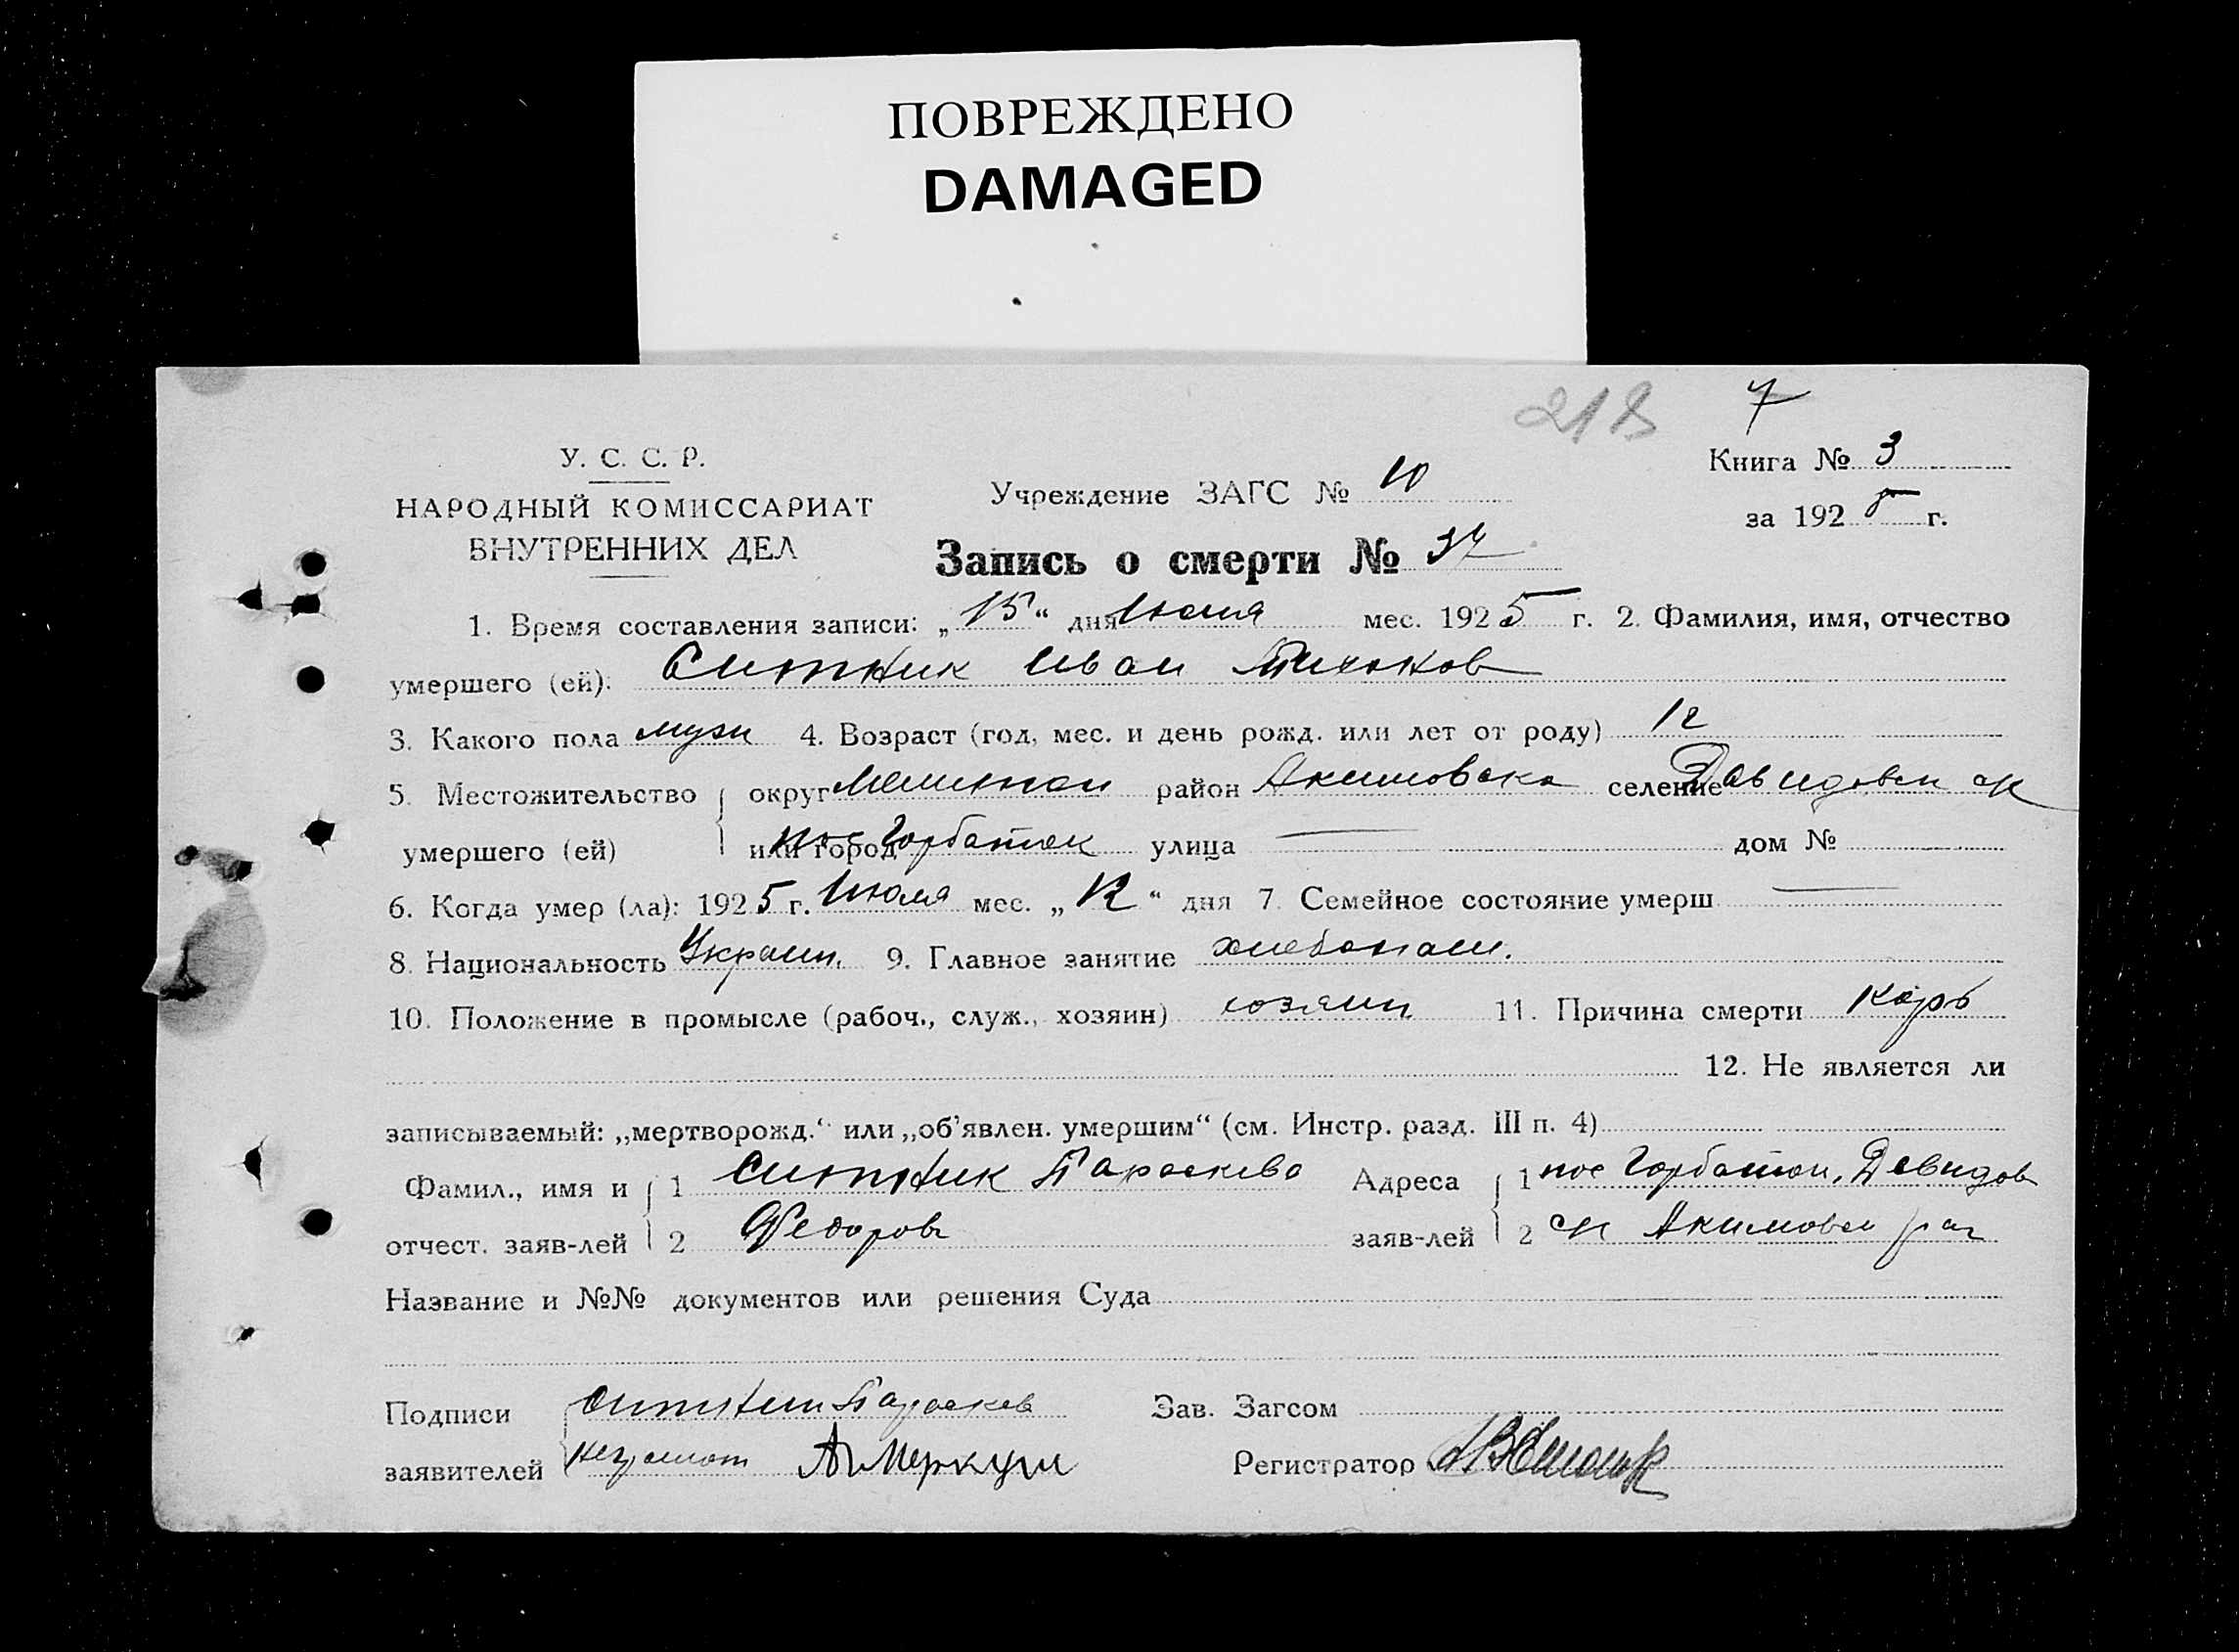 ПОВРЕЖДЕНО
DAMAGED
218 7
У. С. С. Р.
Книга № 3
НАРОДНЫЙ КОМИССАРИАТ
Учреждение ЗАГС № 10
за 1925 г.
ВНУТРЕННИХ ДЕЛ
Запись о смерти № 37
1. Время составления записи: „15“ дня Июля мес. 1925 г. 2. Фамилия, имя, отчество
умершего (ей): Ситник Иван Тихонов
3. Какого пола муж 4. Возраст (год, мес. и день рожд. или лет от роду) 1г
5. Местожительство округ Мелитоп район Акимовско селение Давидовск ск
умершего (ей) или город пос Горбатюк улица — дом №
6. Когда умер (ла): 1925 г. Июля мес. „12“ дня 7. Семейное состояние умерш —
8. Национальность Украин. 9. Главное занятие хлебопаш.
10. Положение в промысле (рабоч., служ., хозяин) хозяин 11. Причина смерти Корь
12. Не является ли
записываемый: „мертворожд.“ или „об’явлен. умершим“ (см. Инстр. разд. III п. 4)
Фамил., имя и 1 Ситник Параскева Адреса 1 пос Горбатюк, Давидов
отчест. заяв-лей 2 Федоров заяв-лей 2 ск Акимовск
Название и №№ документов или решения Суда
Подписи Ситник Параскев Зав. Загсом
заявителей неграмот Регистратор